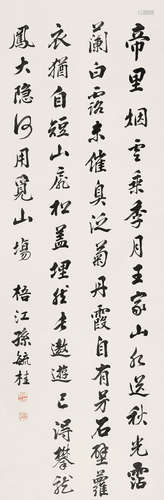 帝里烟雲乘季月王家山水送秋光霑
蘭白露未催臭泛菊丹霞自有芳石壁蘿
衣猶自短山扉松蓋埋然長遨遊已得攀龍
鳳大隱何用覓山塲 梧江孫毓桂